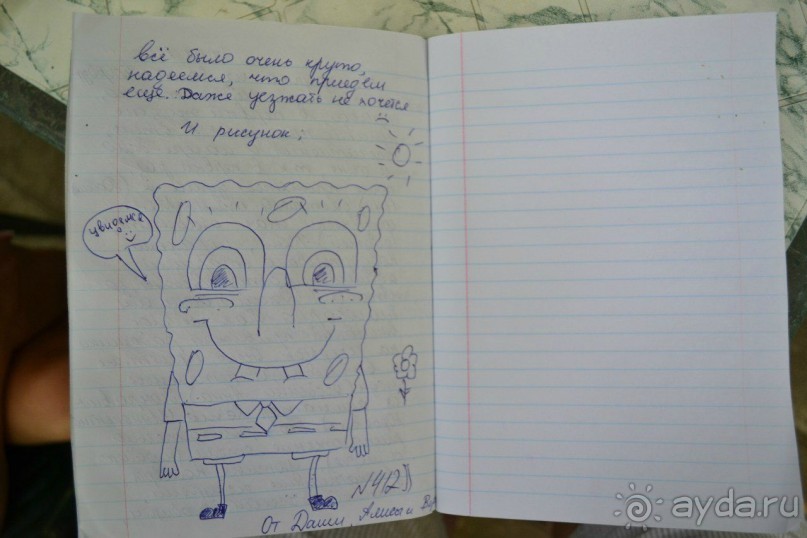 всё было очень круто,
надеемся, что приедем
ещё. Даже уезжать не хочется
И рисунок:
увидемся
№412
От Даши, Алисы и
ayda.ru